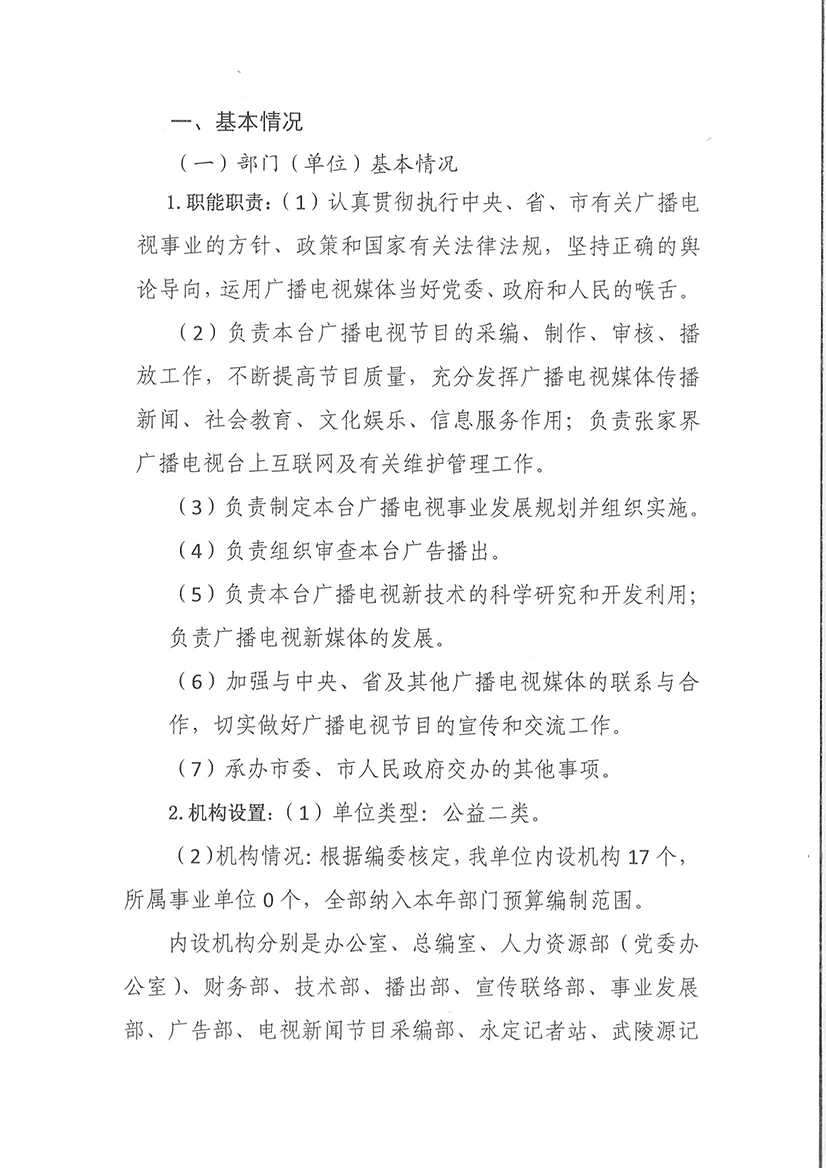 一、基本情况
（一）部门（单位）基本情况
1. 职能职责：（1）认真贯彻执行中央、省、市有关广播电
视事业的方针、政策和国家有关法律法规，坚持正确的舆
论导向，运用广播电视媒体当好党委、政府和人民的喉舌。
（2）负责本台广播电视节目的采编、制作、审核、播
放工作，不断提高节目质量，充分发挥广播电视媒体传播
新闻、社会教育、文化娱乐、信息服务作用；负责张家界
广播电视台上互联网及有关维护管理工作。
（3）负责制定本台广播电视事业发展规划并组织实施。
（4）负责组织审查本台广告播出。
（5）负责本台广播电视新技术的科学研究和开发利用；
负责广播电视新媒体的发展。
（6）加强与中央、省及其他广播电视媒体的联系与合
作，切实做好广播电视节目的宣传和交流工作。
（7）承办市委、市人民政府交办的其他事项。
2. 机构设置：（1）单位类型：公益二类。
（2）机构情况：根据编委核定，我单位内设机构 17 个，
所属事业单位 0 个，全部纳入本年部门预算编制范围。
内设机构分别是办公室、总编室、人力资源部（党委办
公室）、财务部、技术部、播出部、宣传联络部、事业发展
部、广告部、电视新闻节目采编部、永定记者站、武陵源记